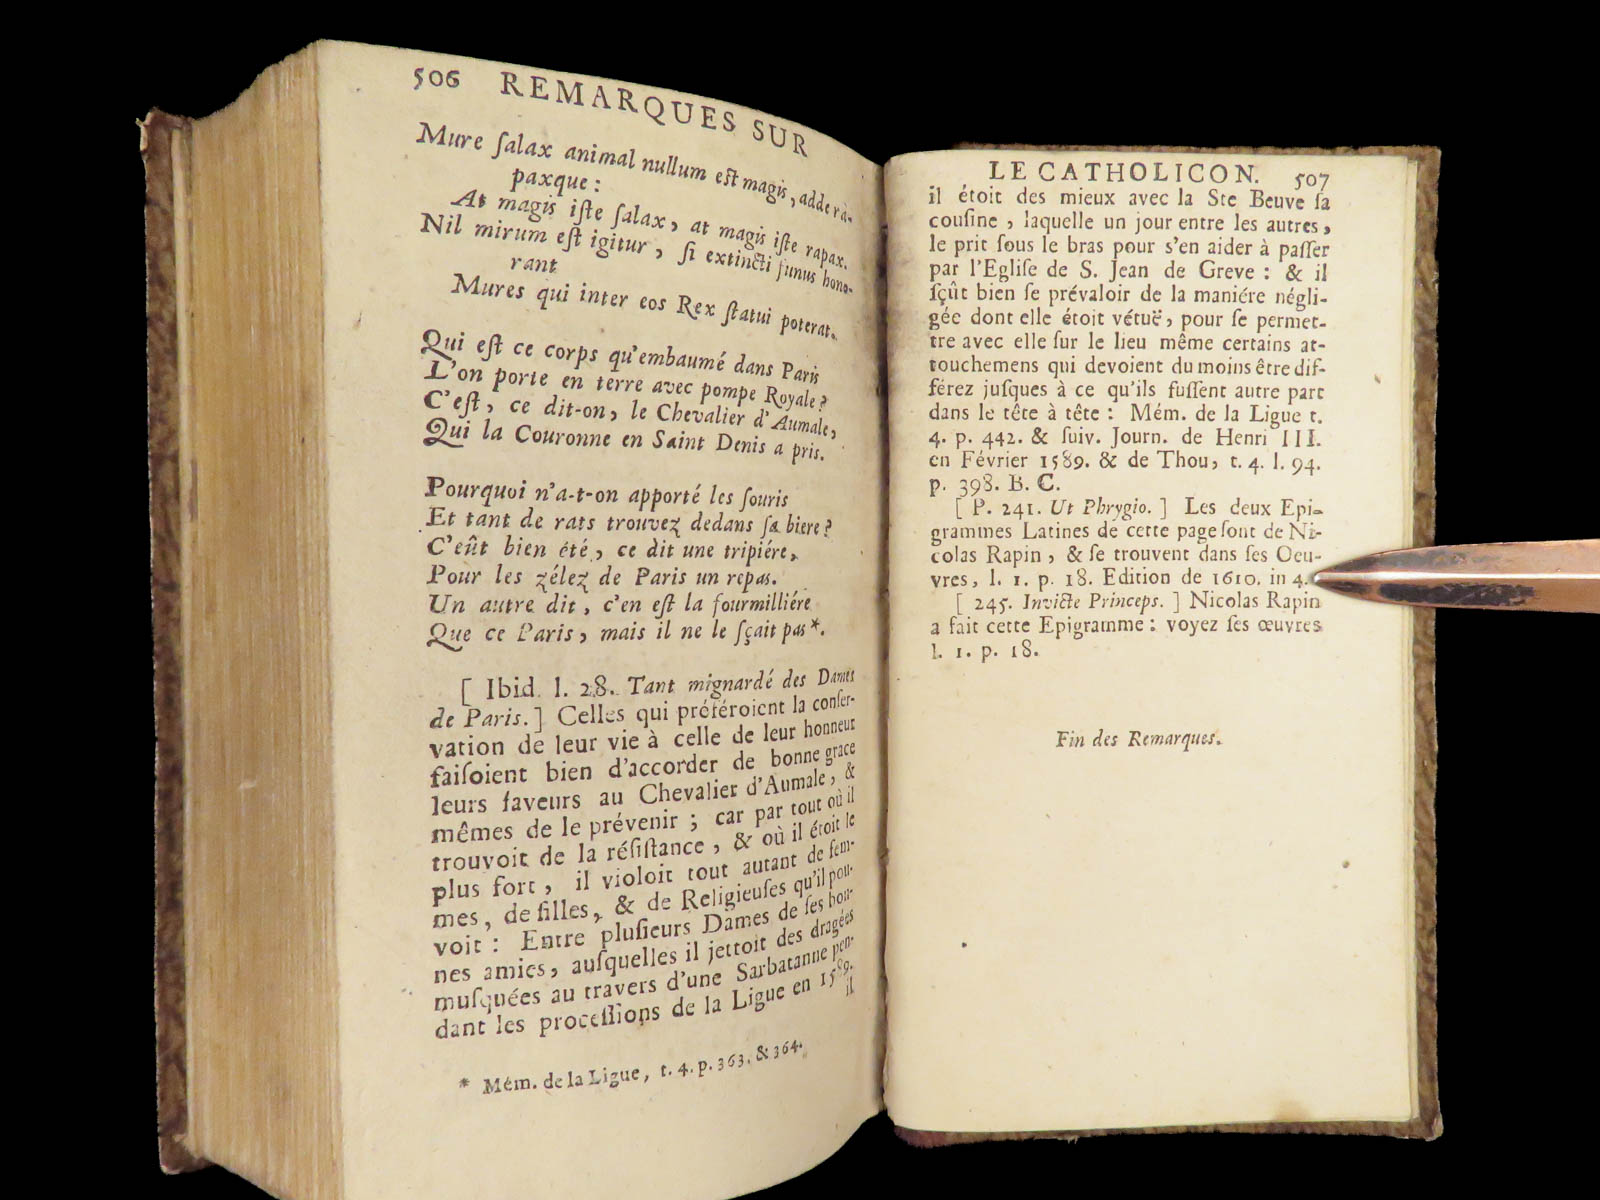 506 REMARQUES SUR
Mure ſalax animal nullum eſt magis, adde rà-
paxque :
At magis iſte ſalax, at magis iſte rapax.
Nil mirum eſt igitur, ſi extincti funus hono-
rant
Mures qui inter eos Rex ſtatui poterat.
Qui eſt ce corps qu'embaumé dans Paris
L'on porte en terre avec pompe Royale ?
C'eſt, ce dit-on, le Chevalier d'Aumale,
Qui la Couronne en Saint Denis a pris.
Pourquoi n'a-t-on apporté les ſouris
Et tant de rats trouvez dedans ſa biere ?
C'eût bien été, ce dit une tripiére,
Pour les zélez de Paris un repas.
Un autre dit, c'en eſt la fourmilliére
Que ce Paris, mais il ne le ſçait pas*.
[ Ibid. l. 28. Tant mignardé des Dames
de Paris. ] Celles qui préféroient la conſer-
vation de leur vie à celle de leur honneur
faiſoient bien d'accorder de bonne grace
leurs faveurs au Chevalier d'Aumale, &
mêmes de le prévenir ; car par tout où il
trouvoit de la réſiſtance, & où il étoit le
plus fort, il violoit tout autant de fem-
mes, de filles, & de Religieuſes qu'il pou-
voit : Entre pluſieurs Dames de ſes bon-
nes amies, auſquelles il jettoit des dragées
muſquées au travers d'une Sarbatanne pen-
dant les proceſſions de la Ligue en 1589.
il
* Mém. de la Ligue, t. 4. p. 363. & 364.
LE CATHOLICON. 507
il étoit des mieux avec la Ste Beuve ſa
couſine, laquelle un jour entre les autres,
le prit ſous le bras pour s'en aider à paſſer
par l'Egliſe de S. Jean de Greve : & il
ſçût bien ſe prévaloir de la maniére négli-
gée dont elle étoit vétuë, pour ſe permet-
tre avec elle ſur le lieu même certains at-
touchemens qui devoient du moins être dif-
férez juſques à ce qu'ils fuſſent autre part
dans le tête à tête : Mém. de la Ligue t.
4. p. 442. & ſuiv. Journ. de Henri III.
en Février 1589. & de Thou, t. 4. l. 94.
p. 398. B. C.
[ P. 241. Ut Phrygio. ] Les deux Epi-
grammes Latines de cette page ſont de Ni-
colas Rapin, & ſe trouvent dans ſes Oeu-
vres, l. 1. p. 18. Edition de 1610. in 4.
[ 245. Invicte Princeps. ] Nicolas Rapin
a fait cette Epigramme : voyez ſes œuvres
l. 1. p. 18.
Fin des Remarques.